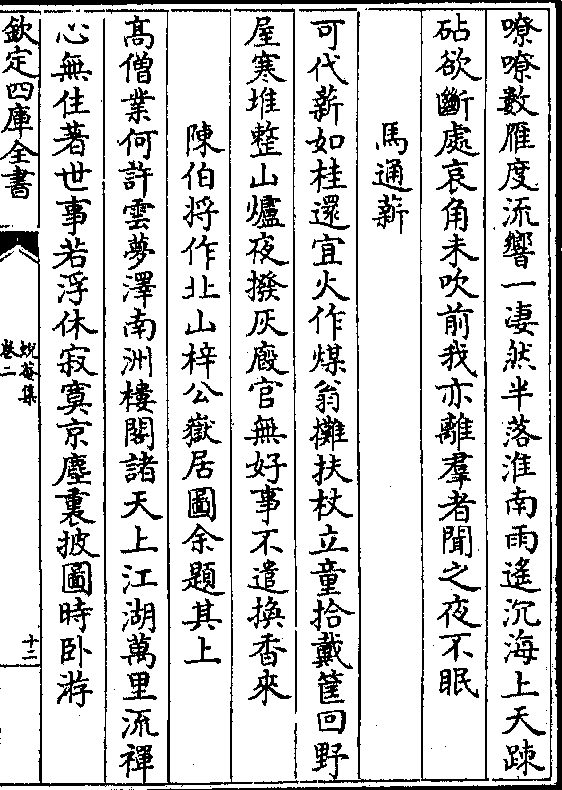 嘹嘹數雁度流響一淒然半落淮南雨遙沉海上天踈
砧欲斷處哀角未吹前我亦離羣者聞之夜不眠
馬通薪
可代薪如桂還宜火作煤翁攤扶杖立童拾戴筐回野
屋寒堆整山爐夜撥灰廄官無好事不遣換香來
陳伯将作北山梓公嶽居圖余題其上
高僧業何許雲夢澤南洲樓閣諸天上江湖萬里流禪
心無住著世事若浮休寂寞京塵裏披圖時卧游
欽定四庫全書
蛻菴集
卷二
十二